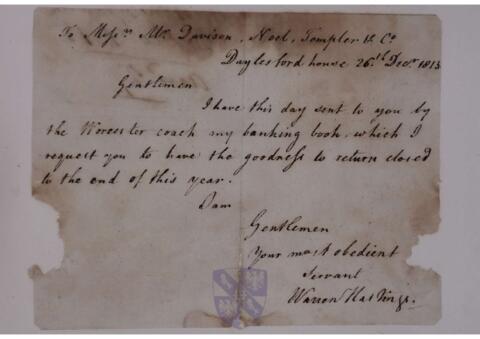 To Messrs Mr Davison, Noel, Templer & Co
Daylesford house 26th Decr 1813
Gentlemen
I have this day sent to you by
the Worcester coach my banking book, which I
request you to have the goodness to return closed
to the end of this year.
I am
Gentlemen
Your most obedient
Servant
Warren Hastings.